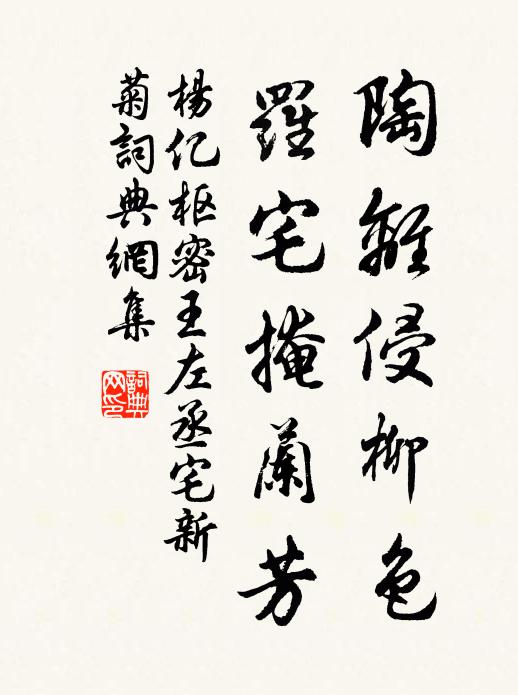 陶離侵柳色
羅宅掩蘭芳
楊億枢密王左丞宅新
菊詞典網集
詞典网印